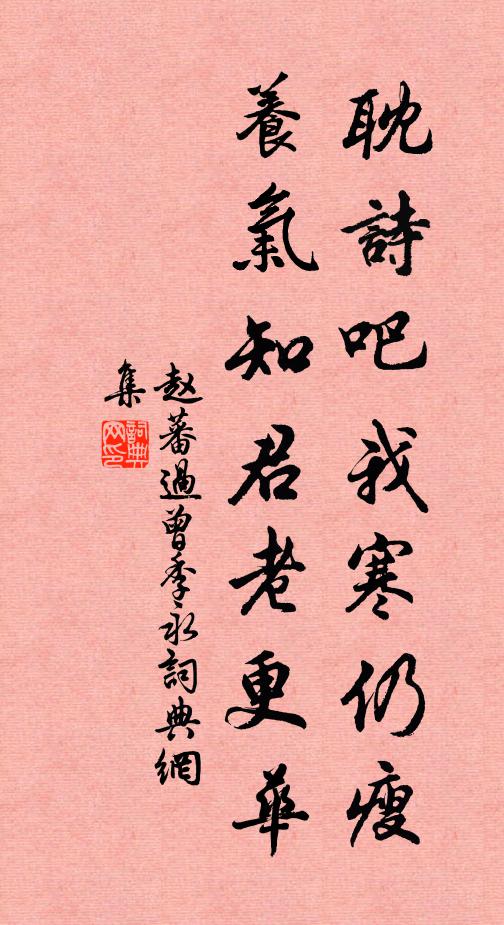 耽詩吧我寒仍瘦
養氣知君老更華
赵蕃過曾季永詞典網
集
詞典
网印